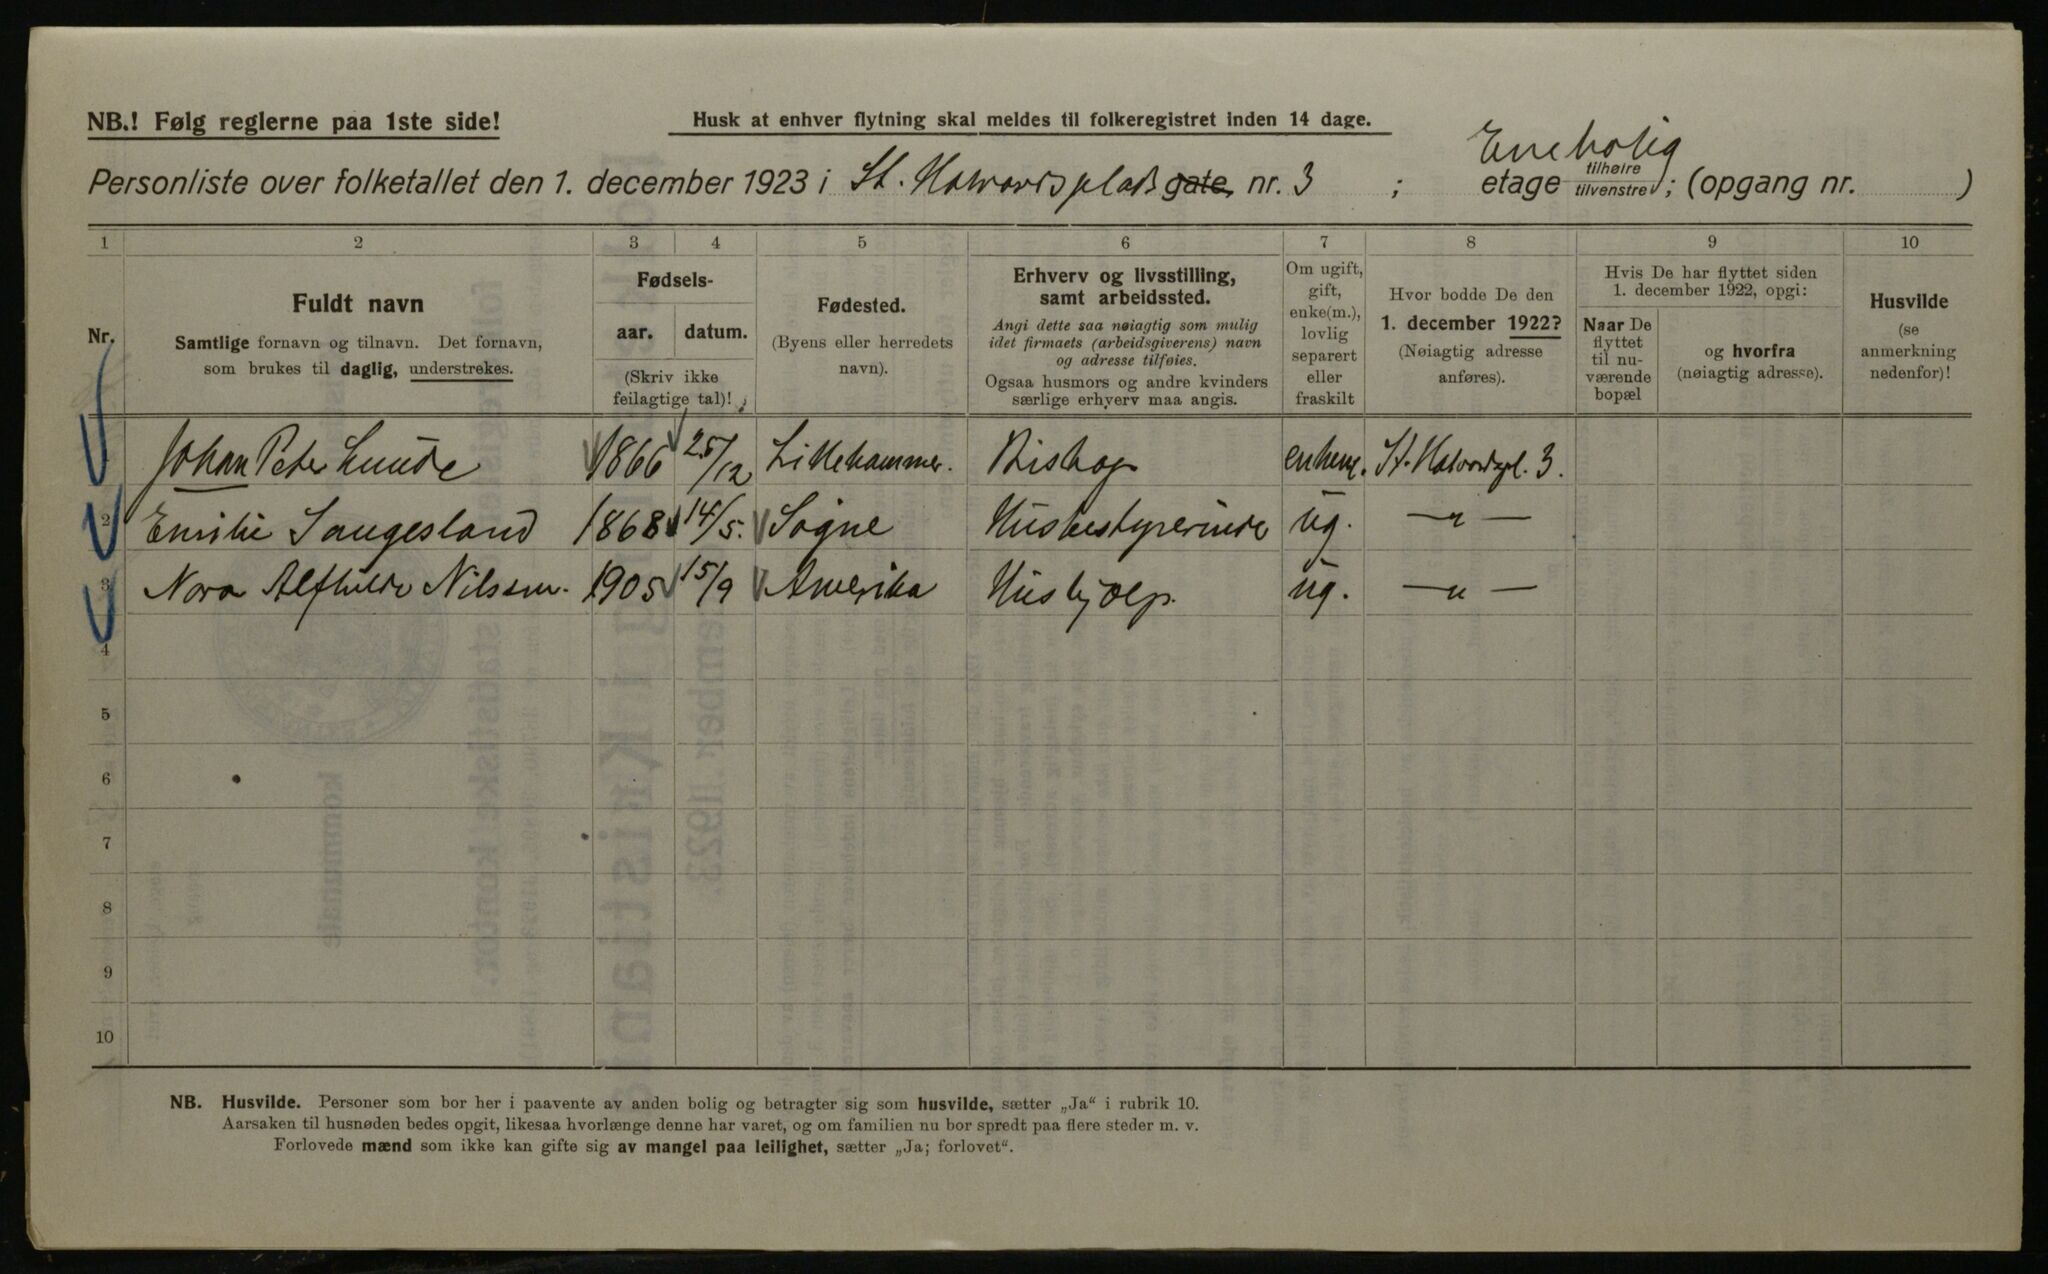 NB.! Følg reglerne paa 1ste side!
Husk at enhver flytning skal meldes til folkeregistret inden 14 dage.
Personliste over folketallet den 1. december 1923 i St. Halvardsplads gate nr. 3 ; etage tilhøire tilvenstre ; (opgang nr. )
Enebolig
1 2 3 4 5 6 7 8 9 10
Nr.
Fuldt navn
Samtlige fornavn og tilnavn. Det fornavn,
som brukes til daglig, understrekes.
Fødsels-
aar. datum.
(Skriv ikke
feilagtige tal)!
Fødested.
(Byens eller herredets
navn).
Erhverv og livsstilling,
samt arbeidssted.
Angi dette saa nøiagtig som mulig
idet firmaets (arbeidsgiverens) navn
og adresse tilføies.
Ogsaa husmors og andre kvinders
særlige erhverv maa angis.
Om ugift,
gift,
enke(m.),
lovlig
separert
eller
fraskilt
Hvor bodde De den
1. december 1922?
(Nøiagtig adresse
anføres).
Hvis De har flyttet siden
1. december 1922, opgi:
Naar De
flyttet
til nu-
værende
bopæl
og hvorfra
(nøiagtig adresse).
Husvilde
(se
anmerkning
nedenfor)!
Johan Peter Lunde 1866 25/12 Lillehammer. Biskop enkem. St. Halvardspl. 3.
2 Emilie Saugesland 1868 14/5. Søgne Husbestyrerinde ug. —"—
3 Nora Alfhilde Nilssen. 1905 15/9 Amerika Hushjælp. ug. —"—
4
5
6
7
8
9
10
NB. Husvilde. Personer som bor her i paavente av anden bolig og betragter sig som husvilde, sætter „Ja“ i rubrik 10.
Aarsaken til husnøden bedes opgit, likesaa hvorlænge denne har varet, og om familien nu bor spredt paa flere steder m. v.
Forlovede mænd som ikke kan gifte sig av mangel paa leilighet, sætter „Ja; forlovet“.